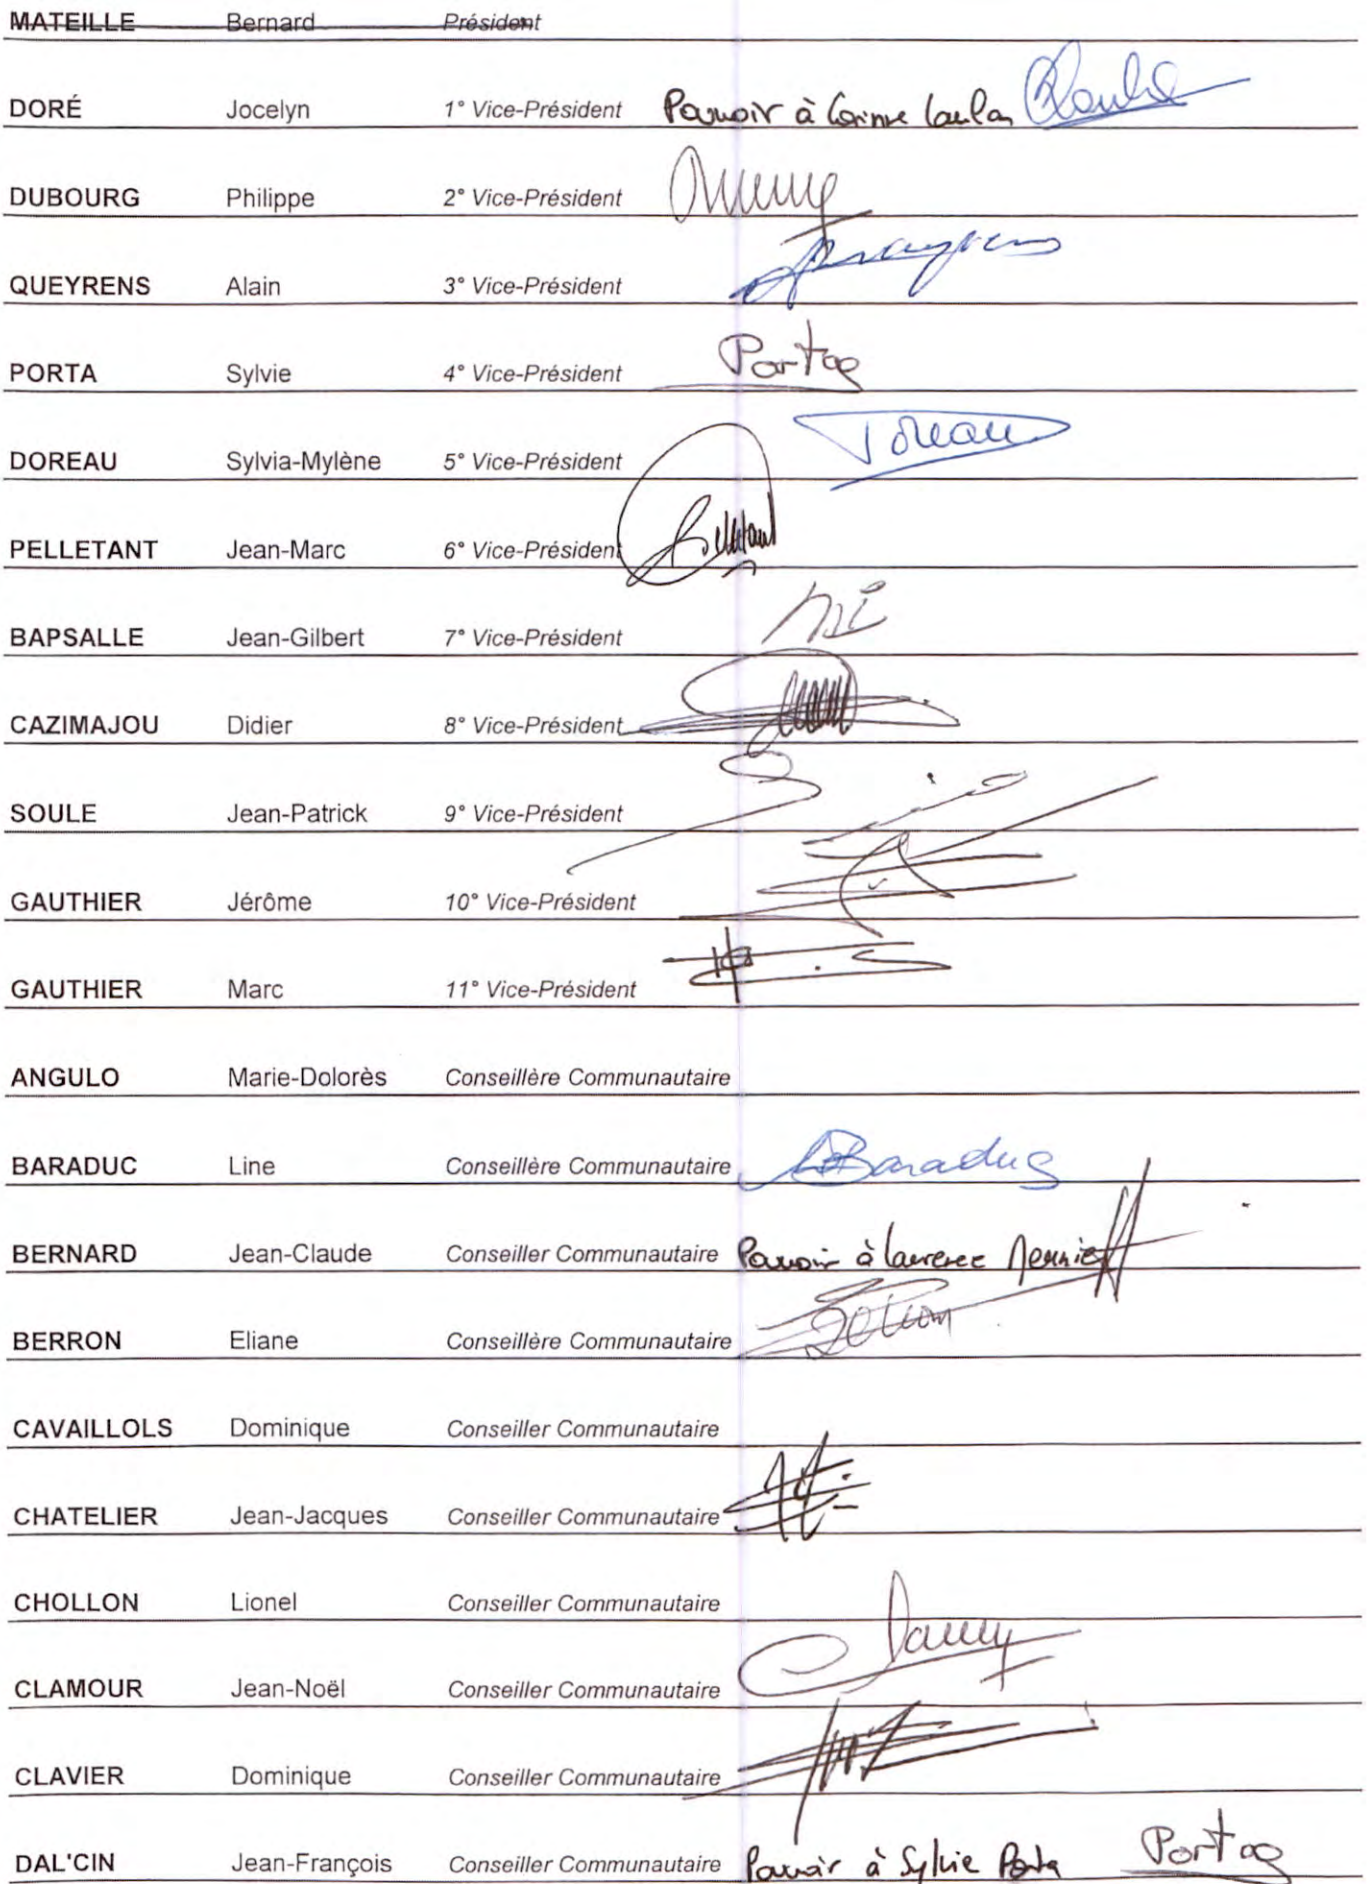 MATEILLE Bernard Président
DORÉ Jocelyn 1° Vice-Président Pouvoir à Corinne Laulan
DUBOURG Philippe 2° Vice-Président
QUEYRENS Alain 3° Vice-Président Queyrens
PORTA Sylvie 4° Vice-Président Porta
DOREAU Sylvia-Mylène 5° Vice-Président Doreau
PELLETANT Jean-Marc 6° Vice-Président Pelletant
BAPSALLE Jean-Gilbert 7° Vice-Président
CAZIMAJOU Didier 8° Vice-Président
SOULE Jean-Patrick 9° Vice-Président
GAUTHIER Jérôme 10° Vice-Président
GAUTHIER Marc 11° Vice-Président
ANGULO Marie-Dolorès Conseillère Communautaire
BARADUC Line Conseillère Communautaire Baraduc
BERNARD Jean-Claude Conseiller Communautaire Pouvoir à Laurence
BERRON Eliane Conseillère Communautaire
CAVAILLOLS Dominique Conseiller Communautaire
CHATELIER Jean-Jacques Conseiller Communautaire
CHOLLON Lionel Conseiller Communautaire
CLAMOUR Jean-Noël Conseiller Communautaire
CLAVIER Dominique Conseiller Communautaire
DAL'CIN Jean-François Conseiller Communautaire Pouvoir à Sylvie Porta Porta